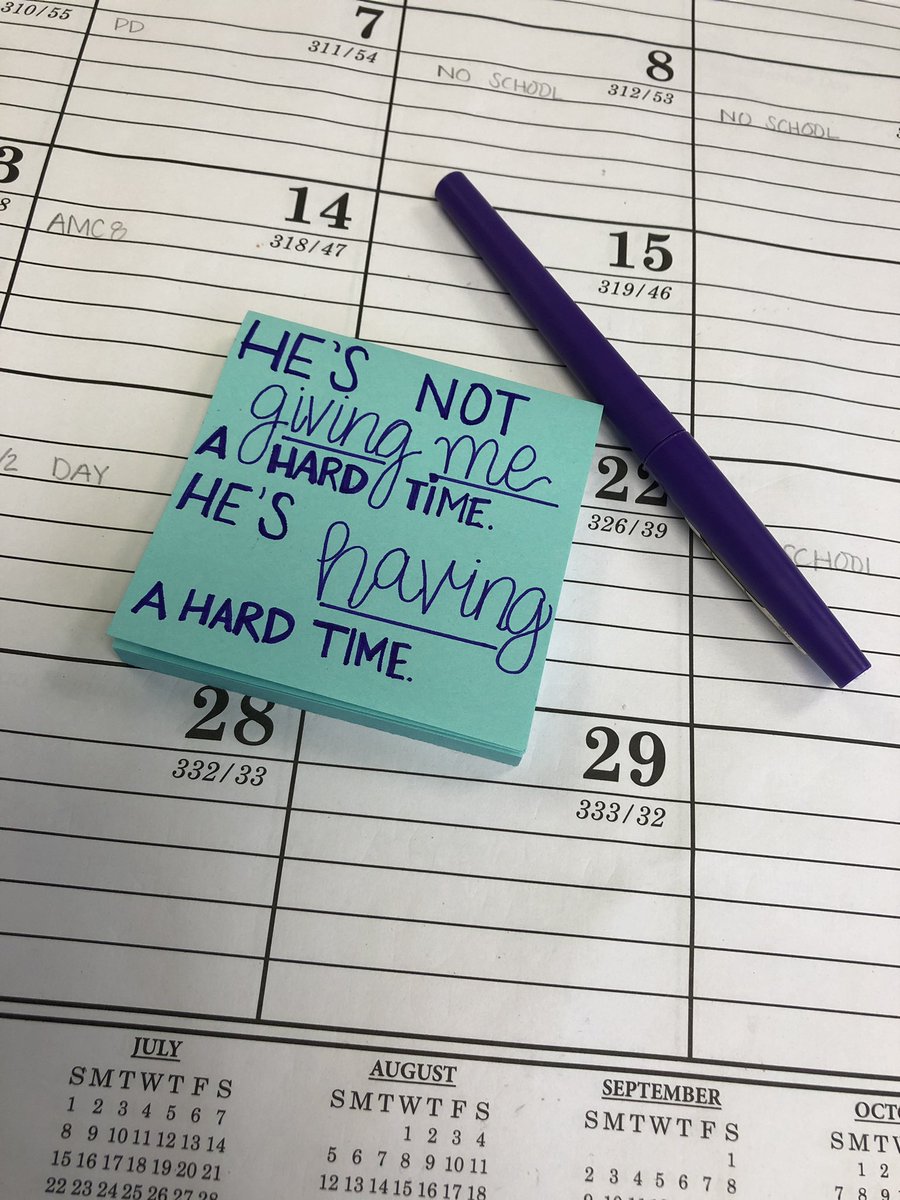 310/55
PD
7
311/54
NO SCHOOL
8
312/53
NO SCHOOL
3
8
AMC8
14
318/47
15
319/46
HE'S NOT
giving me
A HARD TIME.
HE'S
having
A HARD TIME.
/2 DAY
22
326/39
SCHOOL
28
332/33
29
333/32
JULY
S M T W T F S
1 2 3 4 5 6 7
8 9 10 11 12 13 14
15 16 17 18 19 20 21
22 23 24 25 26 27 28
AUGUST
S M T W T F S
1 2 3 4
5 6 7 8 9 10 11
12 13 14 15 16 17 18
SEPTEMBER
S M T W T F S
1
2 3 4 5 6 7 8
OCT
S M T W
1 2
7 8 9